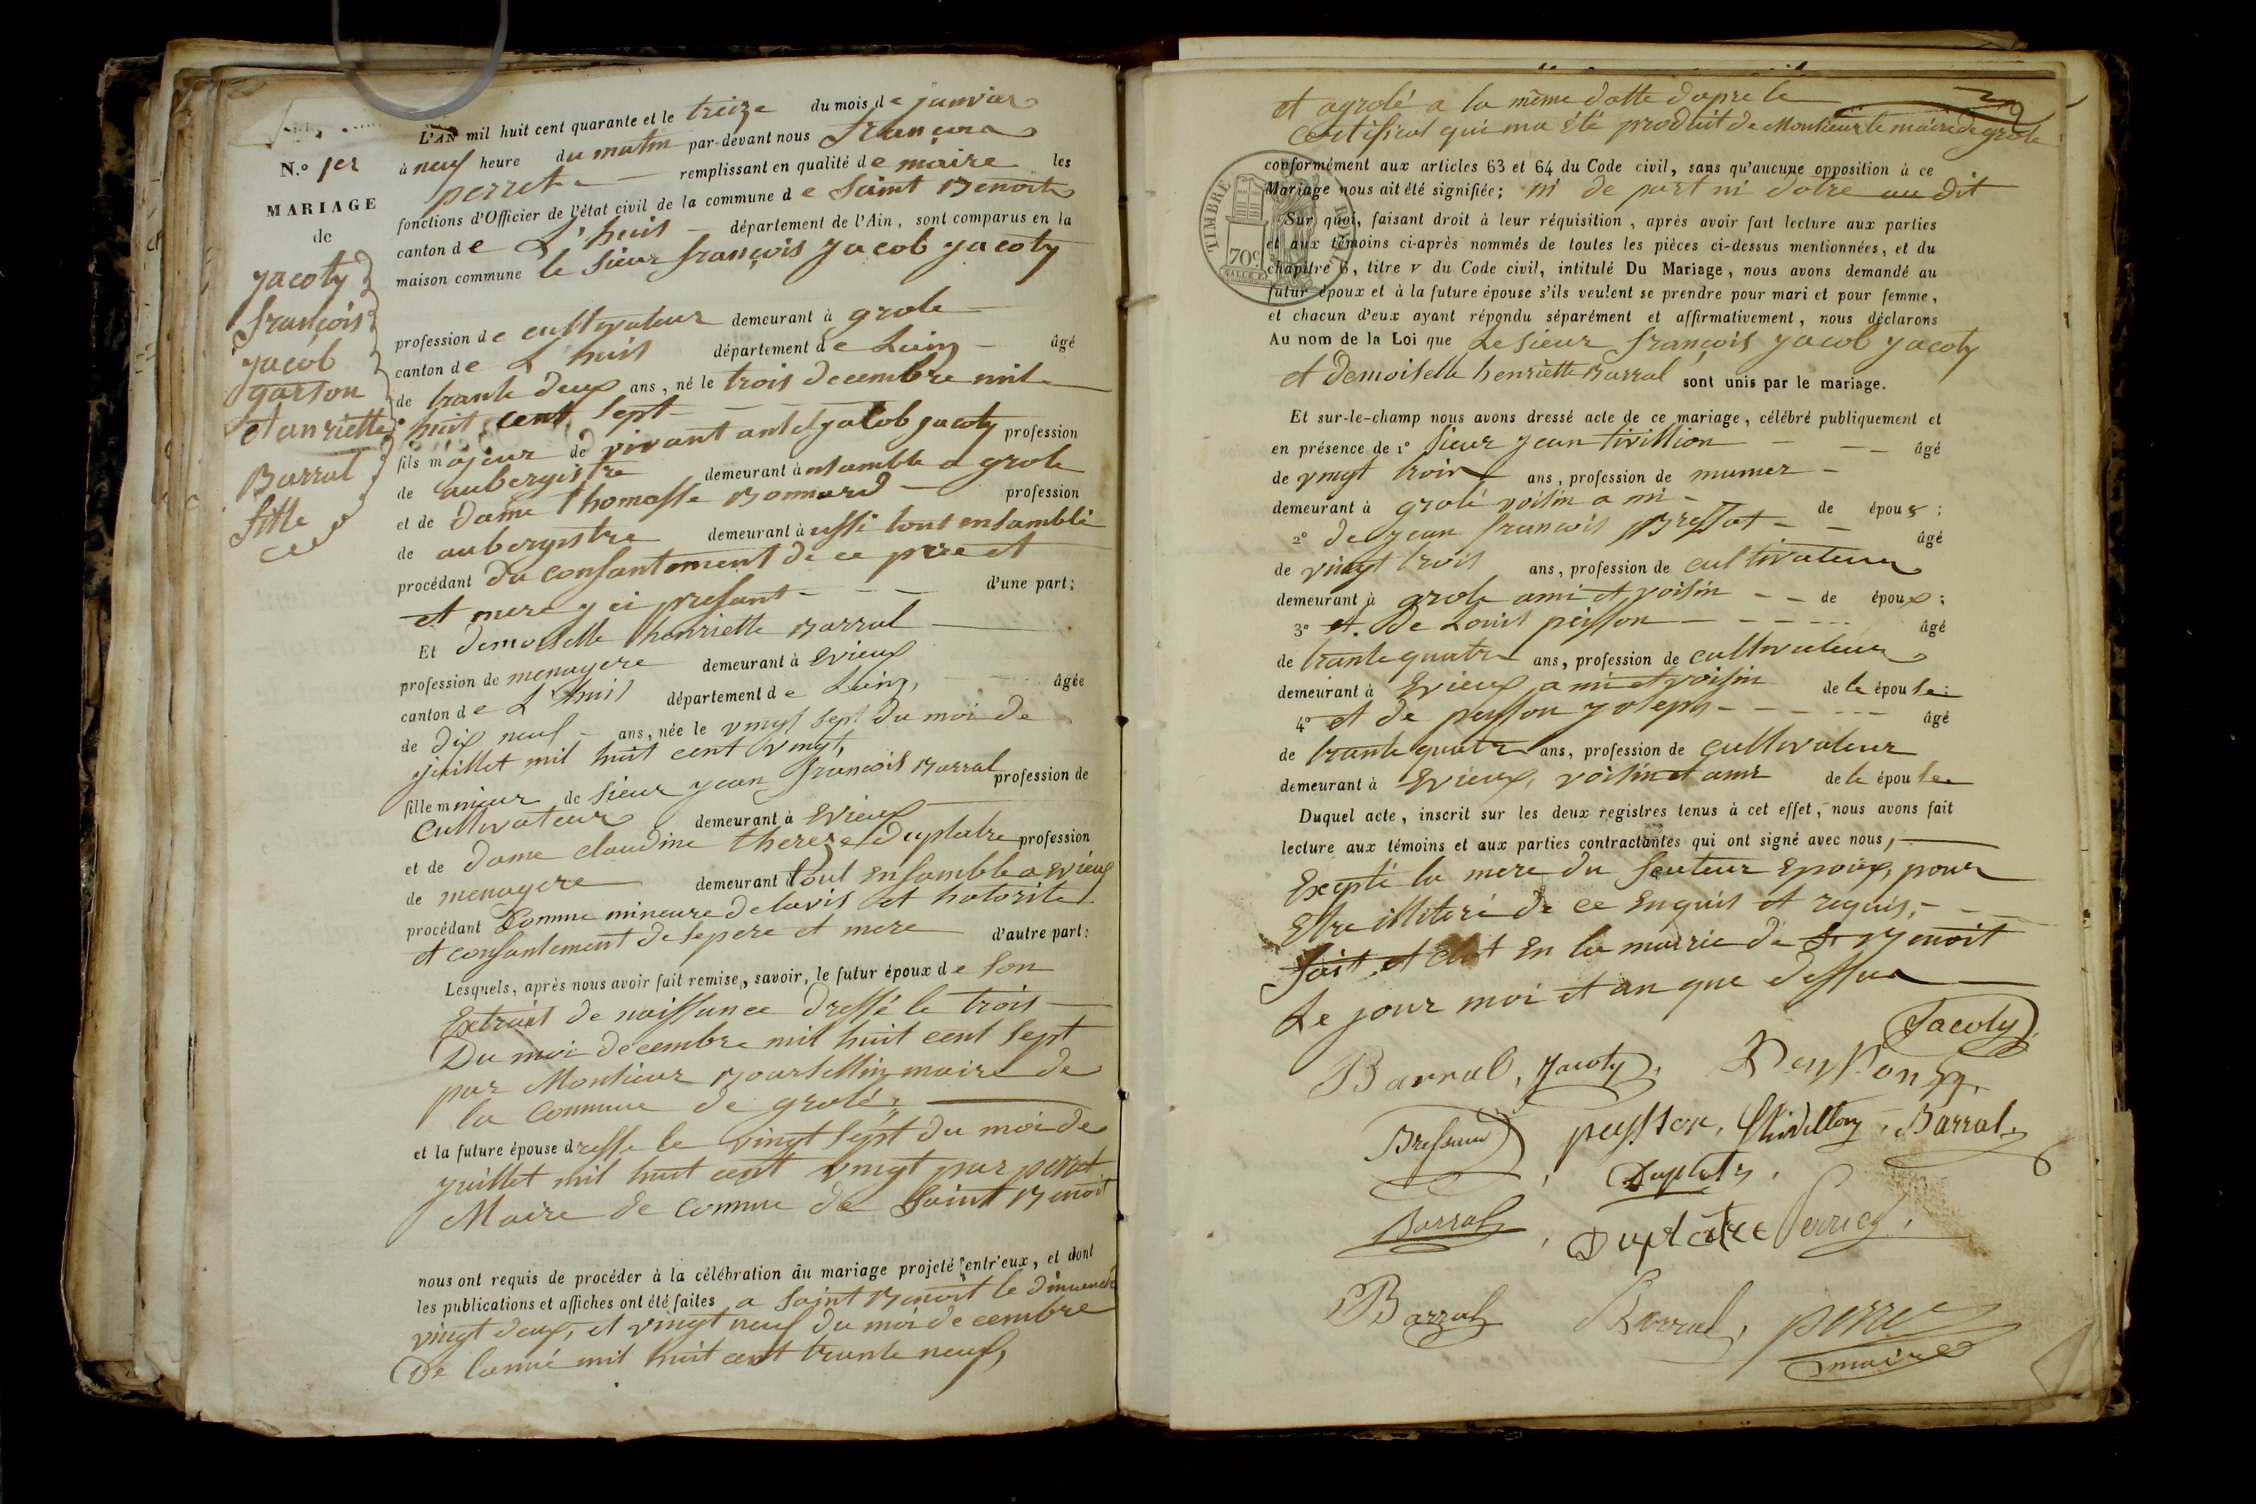 N.° 1er
MARIAGE
de
jacoty
françois
jacob
garson
et anriette
Barral
fille
L'AN mil huit cent quarante et le treize du mois de janvier
à neuf heure du matin par-devant nous François
perret remplissant en qualité de maire les
fonctions d'Officier de l'état civil de la commune de Saint Benoit
canton de L'huis département de l'Ain, sont comparus en la
maison commune le Sieur françois Jacob jacoty
profession de cultivateur demeurant à grole
canton de L'huis département de Lain âgé
de trante deux ans, né le trois decembre mil
huit cent sept
fils majeur de vivant jacob jacoty profession
de aubergistre demeurant à ensamble a grole
et de dame thomasse Bonnard profession
de aubergistre demeurant à ussi tout ensamble
procédant du consantement de ce pere et
et mere y ci presant d'une part;
Et demoiselle henriette Barral
profession de menagere demeurant à Evieux
canton de L'huis département de Lain, âgée
de dix neuf ans, née le vingt sept du moi de
juillet mil huit cent vingt,
fille mineur de Sieur jean françois Barral profession de
Cultivateur demeurant à Evieux
et de dame claudine thereze duplatre profession
de menagere demeurant à tout ensamble a Evieux
procédant Comme mineure de lavis et hotorite
et consantement de se pere et mere d'autre part:
Lesquels, après nous avoir fait remise, savoir, le futur époux de Son
Extrait de naissance dressé le trois
Du moi decembre mil huit cent Sept
par Monsieur Boursellin maire de
la Commune de grolé,
et la future épouse dresse le vingt sept du moi de
juillet mil huit cent vingt par perret
Maire de comune de Saint Benoit
nous ont requis de procéder à la célébration du mariage projeté entr'eux, et dont
les publications et affiches ont été faites a Saint Benoit le dimanche
vingt deux, et vingt neuf du moi decembre
De lanné mil huit cent trante neuf,
et agrolé a la même datte dapre le
certificat qui ma été produit de Monsieur le maire de grole
conformément aux articles 63 et 64 du Code civil, sans qu'aucune opposition à ce
Mariage nous ait été signifiée; ni de part ni dotre au dit
Sur quoi, faisant droit à leur réquisition, après avoir fait lecture aux parties
et aux témoins ci-après nommés de toutes les pièces ci-dessus mentionnées, et du
chapitre 6, titre v du Code civil, intitulé Du Mariage, nous avons demandé au
futur époux et à la future épouse s'ils veulent se prendre pour mari et pour femme,
et chacun d'eux ayant répondu séparément et affirmativement, nous déclarons
Au nom de la Loi que Le Sieur françois jacob jacoty
et Demoiselle henriette Barral sont unis par le mariage.
Et sur-le-champ nous avons dressé acte de ce mariage, célébré publiquement et
en présence de 1° Sieur jean tivillion âgé
de vingt trois ans, profession de
demeurant à grolé voisin a mi de époux;
2° de jean françois Bressat âgé
de vingt trois ans, profession de cultivateur
demeurant à grole ami et voisin de époux;
3° et de Louis peisson âgé
de trante quatre ans, profession de cultivateur
demeurant à Evieux ami et voisin de le épouse
4° et de peysson joseph âgé
de trante quatre ans, profession de cultivateur
demeurant à Evieux, voisin et ami de le épouse
Duquel acte, inscrit sur les deux registres tenus à cet effet, nous avons fait
lecture aux témoins et aux parties contractantes qui ont signé avec nous,
Excepté la mere du Seuteur Epoux, pour
Etre illiteré de ce Enquis et requis,
fait et clot en la mairie de St Benoit
Le jour moi et an que dessus
Jacoty
Barral, Jacoty, Peysson
peysson, thivillon, Barral,
Duplatr,
Barral, Duplatre Perret,
Barral Barral, perret
maire
TIMBRE ROYAL
70c